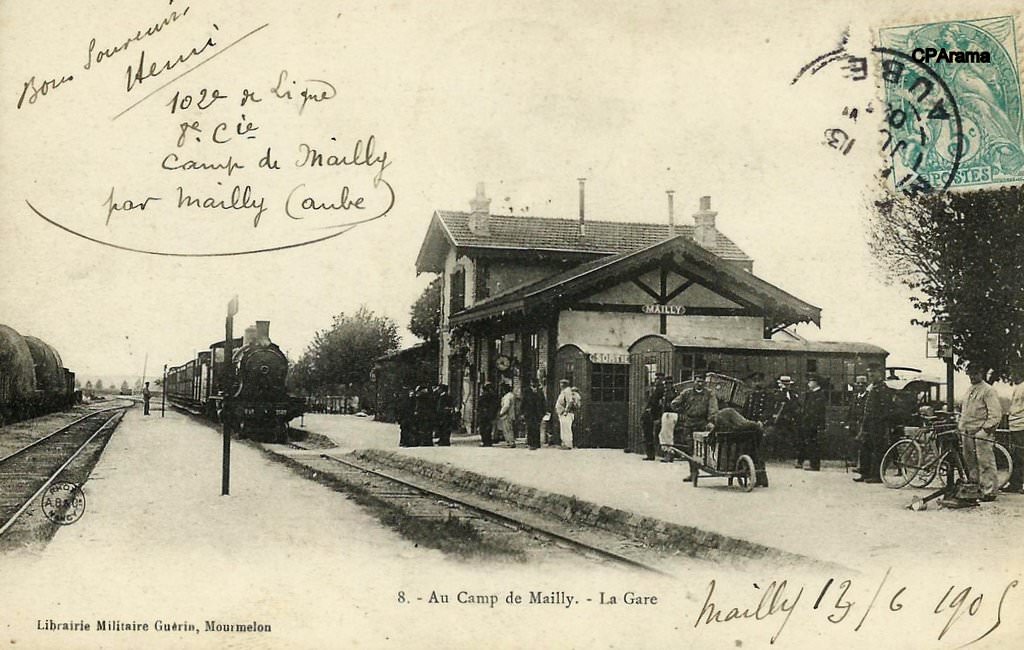 Bons Souvenirs
Henri
102e de Ligne
8e Cie
Camp de Mailly
par Mailly (aube)
CPArama
AUBE
13
POSTES
MAILLY
SORTIE
PHOT
A.B.& Cie
NANCY
8. - Au Camp de Mailly. - La Gare
Librairie Militaire Guérin, Mourmelon
Mailly 13/6 1905